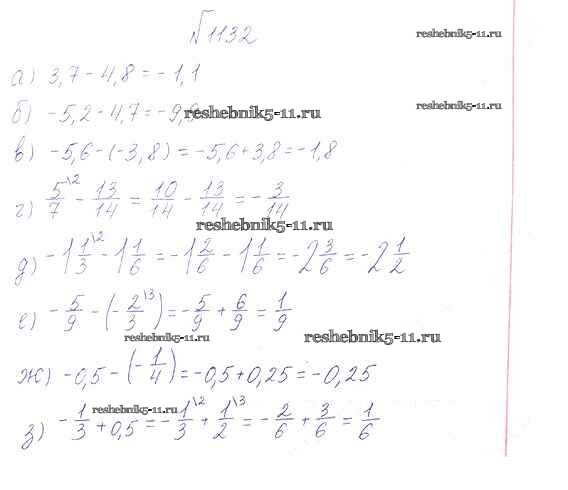 №1132
reshebnik5-11.ru
а) 3,7 - 4,8 = -1,1
reshebnik5-11.ru
б) -5,2 - 4,7 = -9,9
reshebnik5-11.ru
в) -5,6 - (-3,8) = -5,6 + 3,8 = -1,8
г) 5/7 \2 - 13/14 = 10/14 - 13/14 = -3/14
reshebnik5-11.ru
д) -1 1/3 \2 - 1 1/6 = -1 2/6 - 1 1/6 = -2 3/6 = -2 1/2
е) -5/9 - (-2/3 \3) = -5/9 + 6/9 = 1/9
reshebnik5-11.ru
reshebnik5-11.ru
ж) -0,5 - (-1/4) = -0,5 + 0,25 = -0,25
reshebnik5-11.ru
з) -1/3 + 0,5 = -1/3 \2 + 1/2 \3 = -2/6 + 3/6 = 1/6